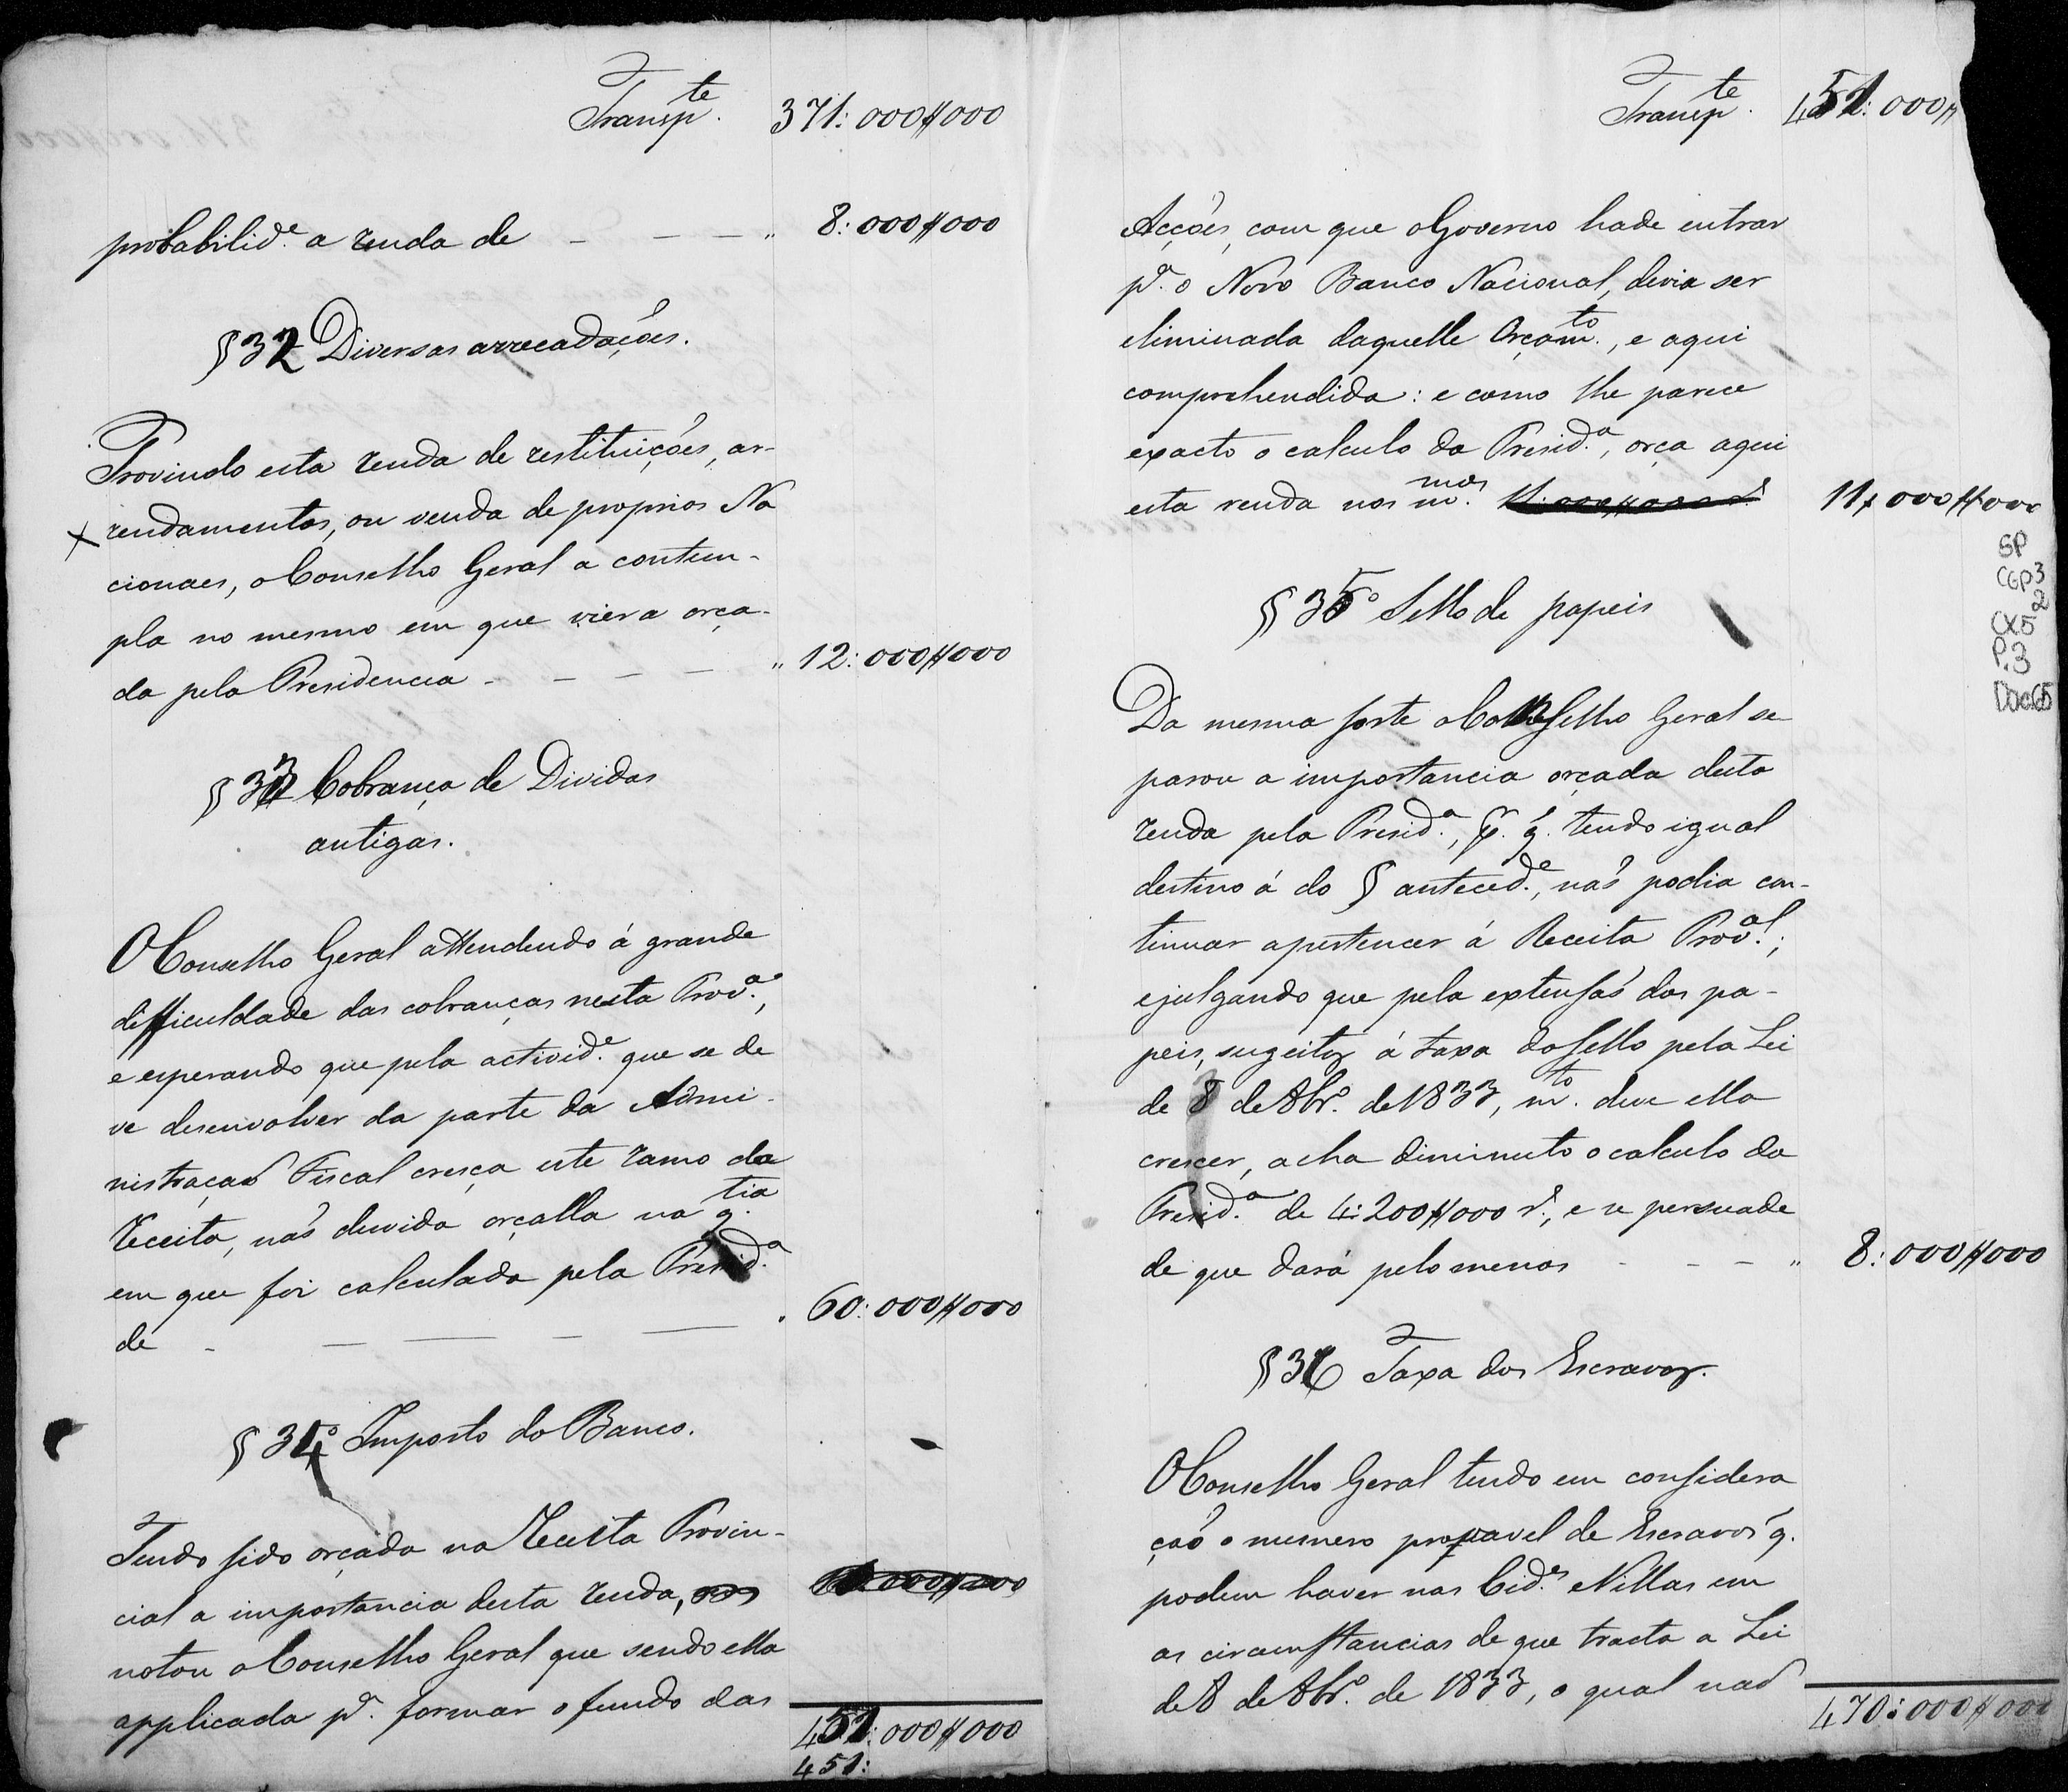 Transp.te 371:000$000
probabilid.e a renda de — — — " 8:000$000
§ 32 Diversas arrecadações.
Provindo esta renda de restituições, ar-
rendamentos, ou venda de proprios Na
cionaes, o Conselho Geral a contem-
pla no mesmo em que viera orça-
da pela Presidencia - - - — " 12:000$000
§ 33 Cobrança de Dividas
antigas.
O Conselho Geral attendendo á grande
difficuldade das cobranças nesta Prov.a,
e esperando que pela activid.e que se de
ve desenvolver da parte da Admi-
nistração Fiscal cresça este ramo da
Receita, não duvida orçalla na q.tia
em que foi calculada pela Presid.a
de - — — - — . 60:000$000
§ 34º Imposto do Banco.
Tendo sido orçada na Receita Provin-
cial a importancia desta renda,
notou o Conselho Geral que sendo ella
applicada p.a formar o fundo das
451:000$000
451:
Transp.te 451:000$
Acções, com que o Governo hade entrar
p.a o Novo Banco Nacional, devia ser
eliminada daquelle Orçam.to, e aqui
comprehendida: e como lhe parece
exacto o calculo da Presid.a, orça aqui
esta renda nos m.mos 11:000$000 r.s 11:000$000
SP
CGP3
2
CX5
P.3
Doc65
§ 35º Sello de papeis
Da mesma sorte o Conselho Geral se
parou a importancia orçada desta
renda pela Presid.a, p.r q. tendo igual
destino á do § anteced.e, não podia con-
tinuar apertencer á Receita Prov.al;
e julgando que pela extensão dos pa-
peis, sugeitos á taxa do sello pela Lei
de 8 de 8br.o de 1833, m.to deve ella
crescer, acha diminuto o calculo da
Presid.a de 4:200$000 r.s, e se persuade
de que dará pelo menos - - — " 8:000$000
§ 36 Taxa dos Escravos.
O Conselho Geral tendo em considera
ção o numero provavel de Escravos q.
podem haver nas Cid.es e Villas em
as circunstancias de que tracta a Lei
de 8 de 8br.o de 1833, o qual não
470:000$000